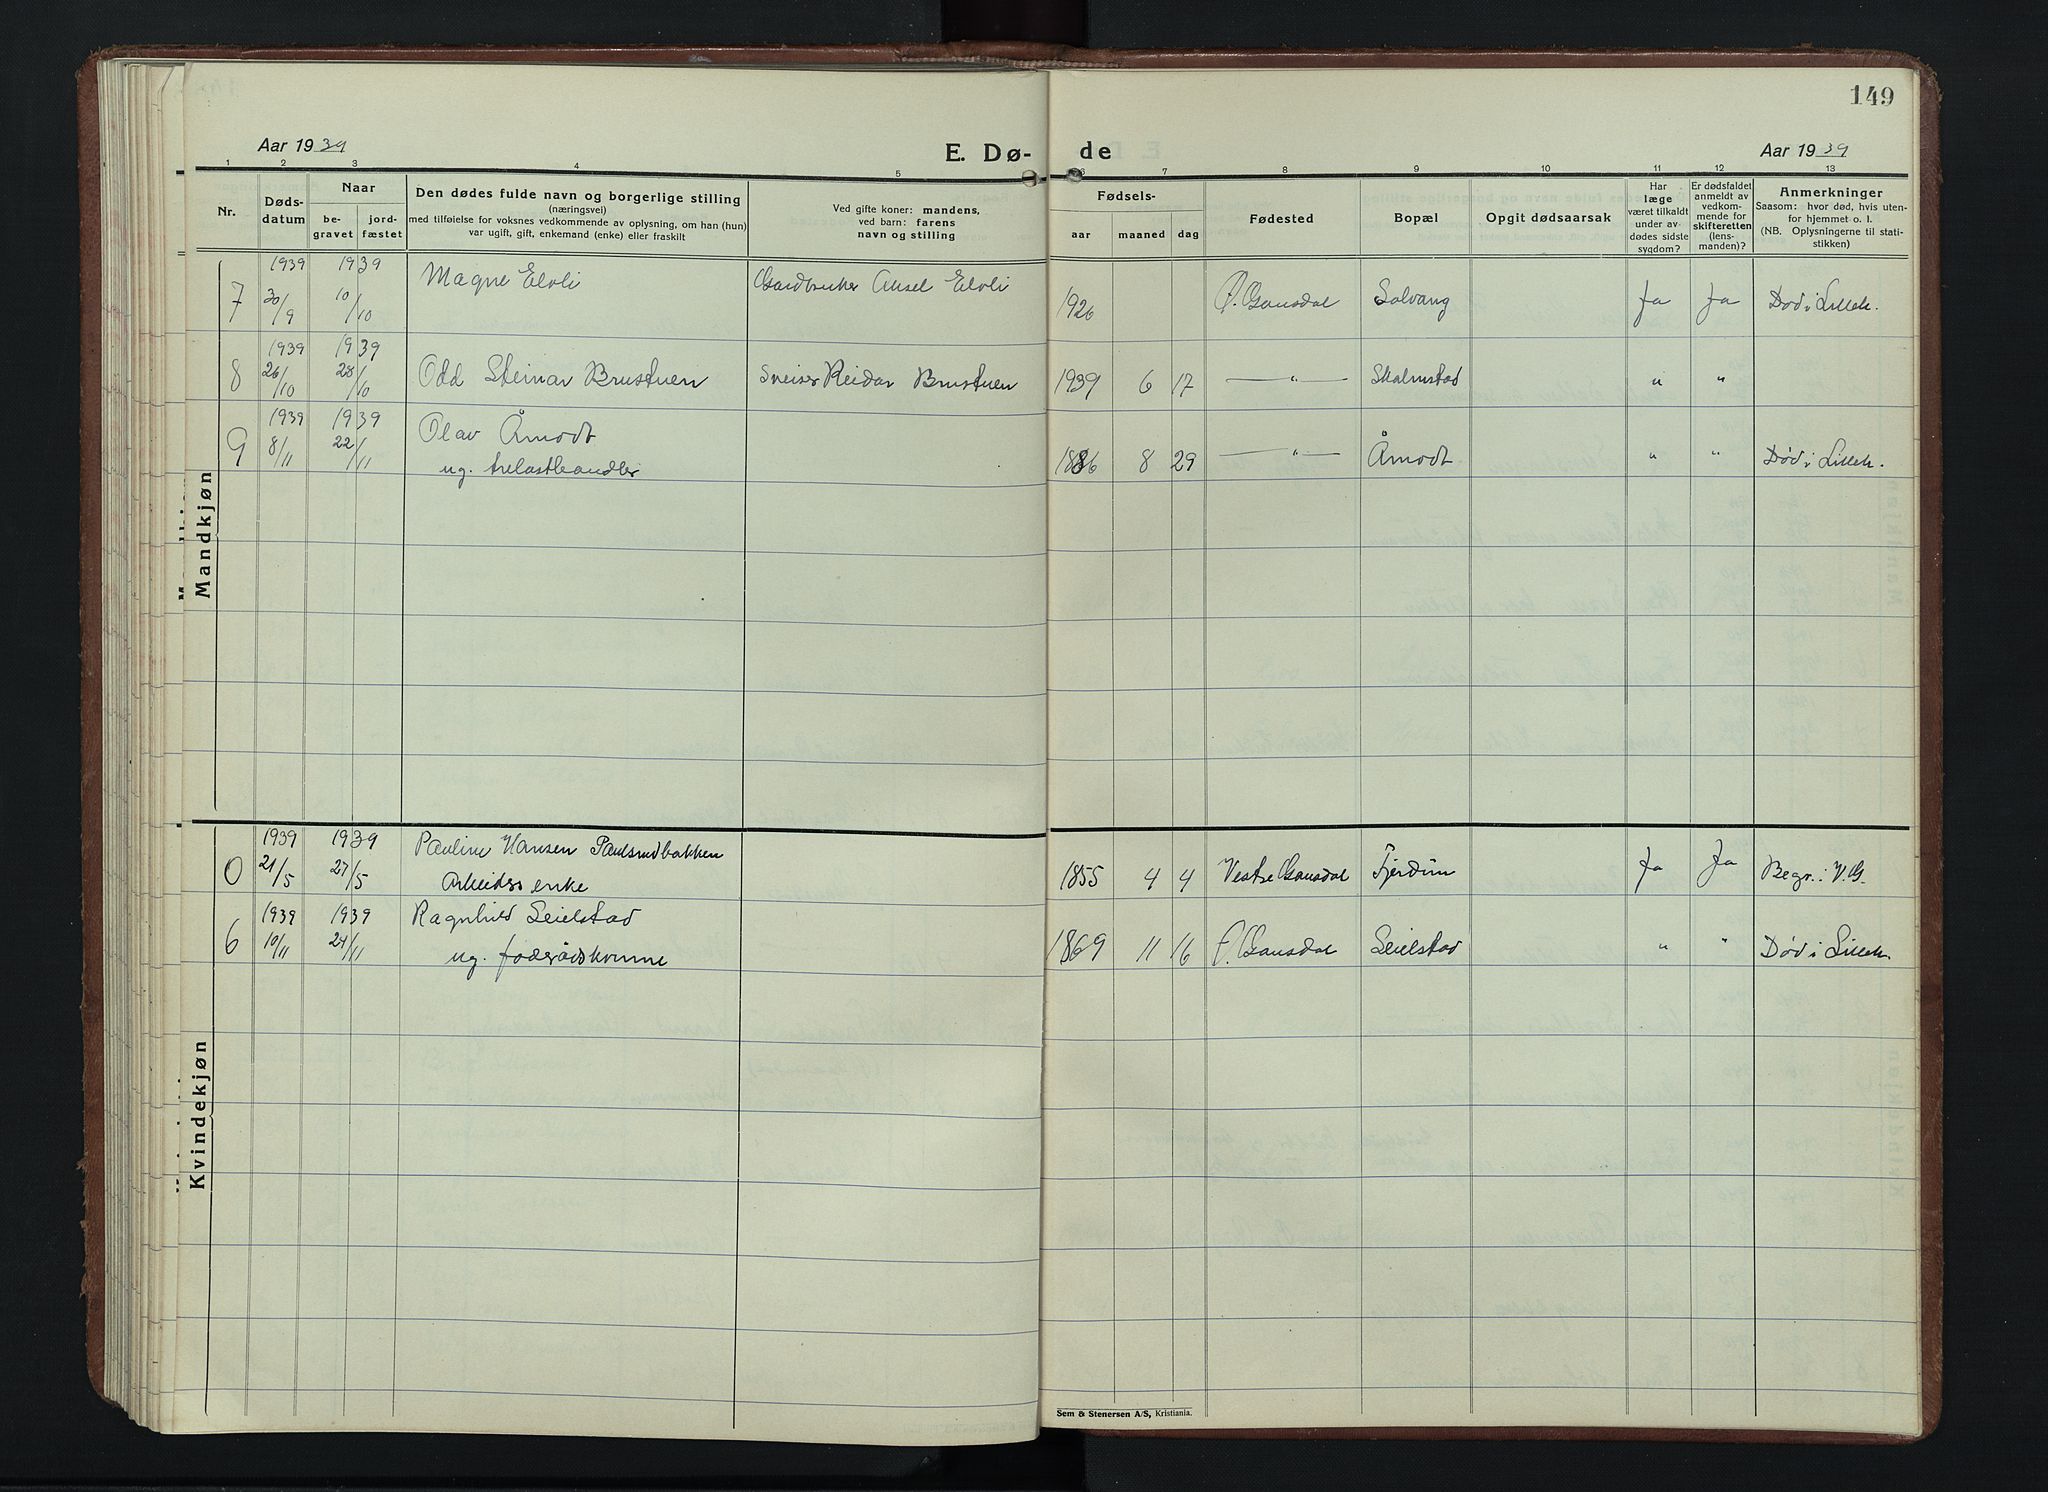 149
Aar 1939
E. Dø-
de
Aar 1939
1 2 3 4 5 6 7 8 9 10 11 12 13
Nr.
Døds-
datum
Naar
be-
gravet
jord-
fæstet
Den dødes fulde navn og borgerlige stilling
(næringsvei)
med tilføielse for voksnes vedkommende av oplysning, om han (hun)
var ugift, gift, enkemand (enke) eller fraskilt
Ved gifte koner: mandens,
ved barn: farens
navn og stilling
Fødsels-
aar maaned dag
Fødested
Bopæl
Opgit dødsaarsak
Har
læge
været tilkaldt
under av-
dødes sidste
sygdom?
Er dødsfaldet
anmeldt av
vedkom-
mende for
skifteretten
(lens-
manden)?
Anmerkninger
Saasom: hvor død, hvis uten-
for hjemmet o. l.
(NB. Oplysningerne til stati-
stikken)
Mandkjøn
1939 1939
7 30/9 10/10 Magne Elvli Gardbruker Aksel Elvli 1926 Ø. Gausdal Solvang Ja Ja Død i Lilleh.
1939 1939
8 26/10 28/10 Odd Steinar Brustuen Sveiser Reidar Brustuen 1939 6 17 — " — Skalmstad " "
1939 1939
9 8/11 22/11 Olav Åmodt
ug. trelasthandler 1886 8 29 — " — Åmodt " " Død i Lilleh.
Kvindekjøn
1939 1939
0 21/5 27/5 Pauline Hansen Paulsrudbakken
Arbeiders enke 1855 4 4 Vestre Gausdal Fjerdum Ja Ja Begr. i V.G.
1939 1939
6 10/11 24/11 Ragnhild Seielstad
ug. føderådskvinne 1869 11 16 Ø. Gausdal Seielstad " " Død i Lilleh.
Sem & Stenersen A/S, Kristiania.